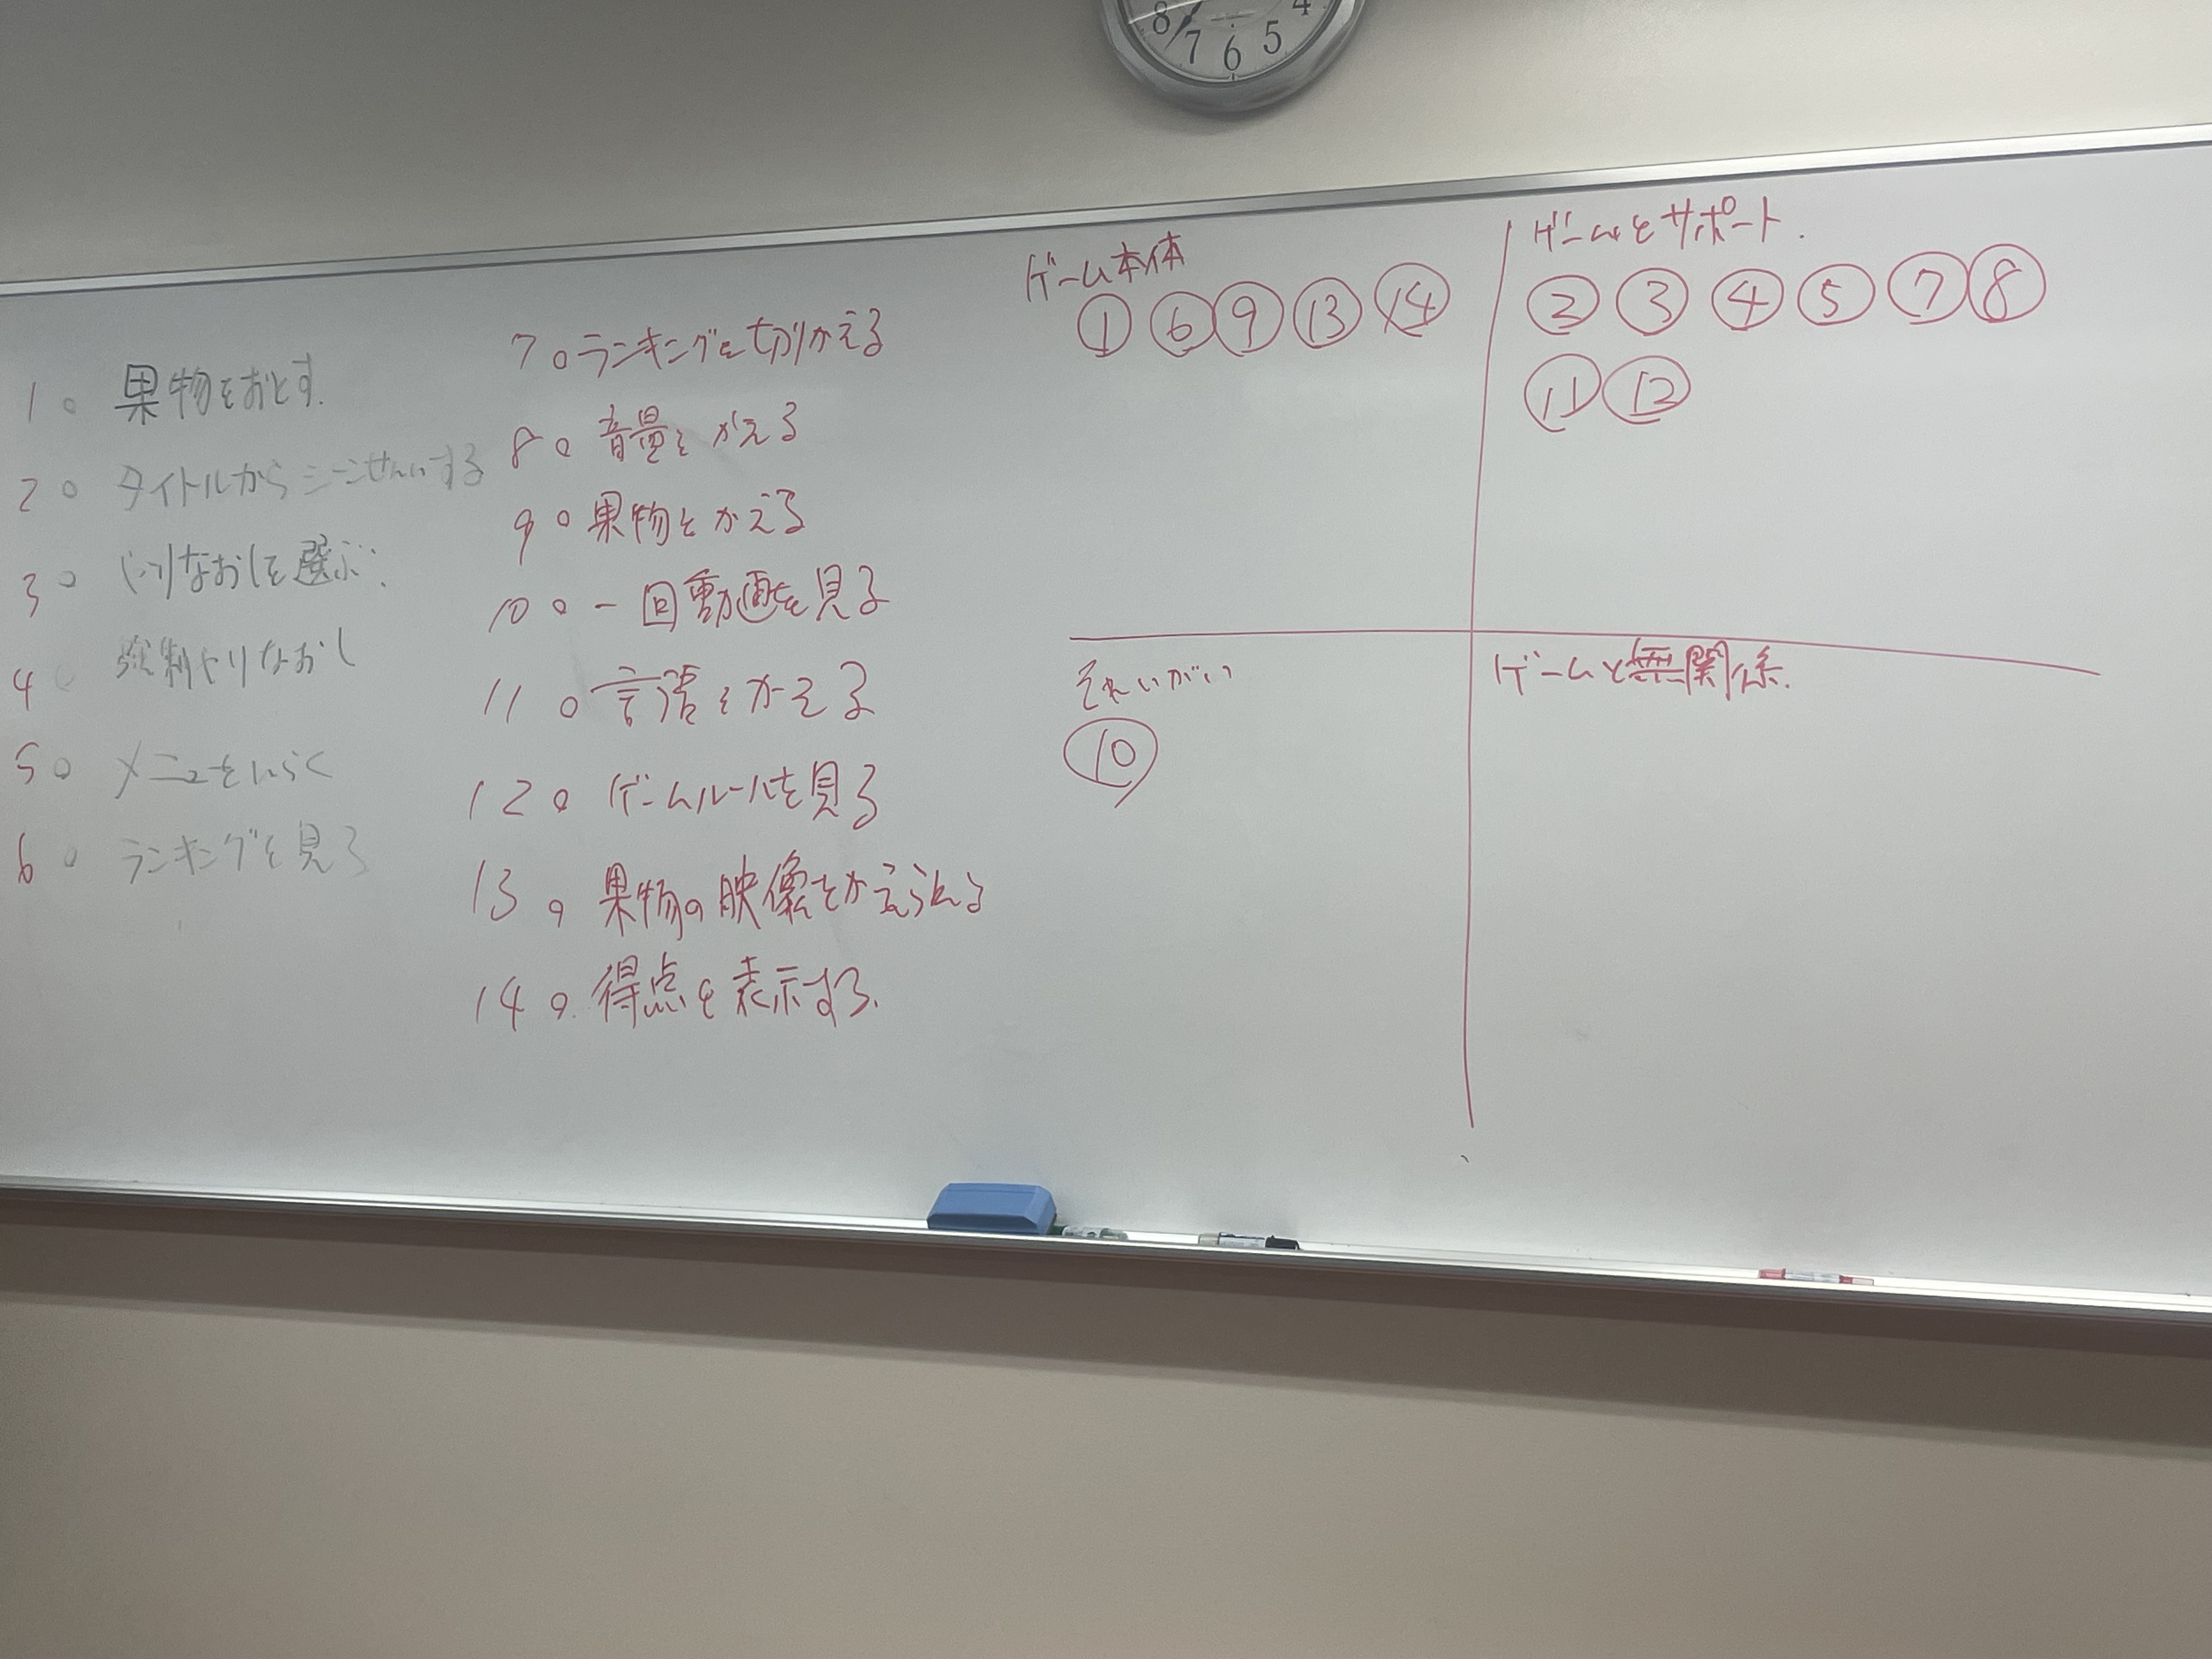 8 7 6 5 4
1。 果物をおとす.
2。 タイトルからシーンせんいする
3。 やりなおしを選ぶ.
4。 強制やりなおし
5。 メニューをひらく
6。 ランキングを見る
7。ランキングを切りかえる
8。 音量をかえる
9。果物をかえる
10。一回動画を見る
11。言語をかえる
12。ゲームルールを見る
13。果物の映像をかえられる
14。得点を表示する.
ゲーム本体
① ⑥ ⑨ ⑬ ⑭
ゲームをサポート.
② ③ ④ ⑤ ⑦ ⑧
⑪ ⑫
それいがい
⑩
ゲームと無関係.